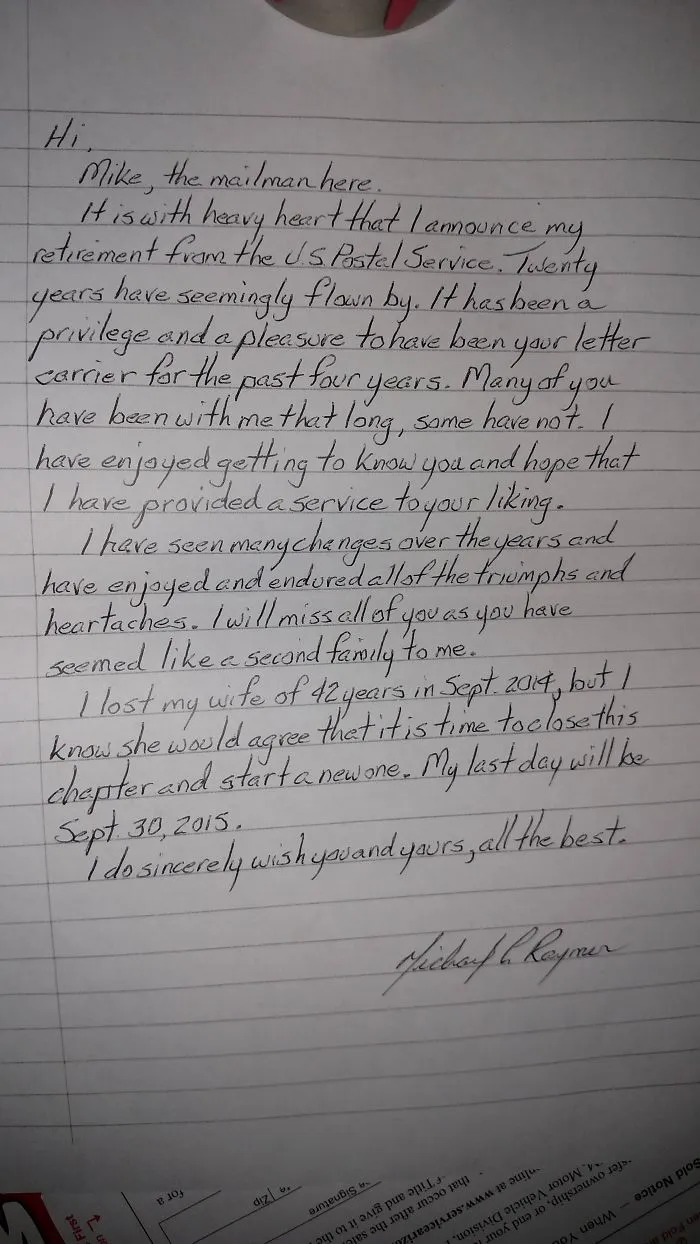 Hi,
Mike, the mailman here.
It is with heavy heart that I announce my
retirement from the U.S. Postal Service. Twenty
years have seemingly flown by. It has been a
privilege and a pleasure to have been your letter
carrier for the past four years. Many of you
have been with me that long, some have not. I
have enjoyed getting to know you and hope that
I have provided a service to your liking.
I have seen many changes over the years and
have enjoyed and endured all of the triumphs and
heartaches. I will miss all of you as you have
seemed like a second family to me.
I lost my wife of 42 years in Sept. 2014, but I
know she would agree that it is time to close this
chapter and start a new one. My last day will be
Sept. 30, 2015.
I do sincerely wish you and yours, all the best.
Michael Raymer
Sold Notice
When
ownership, or end your
Motor Vehicle Division,
at www.serviceari
that occur after the sale
Title and give it to the
Signature
Zip
for a
First